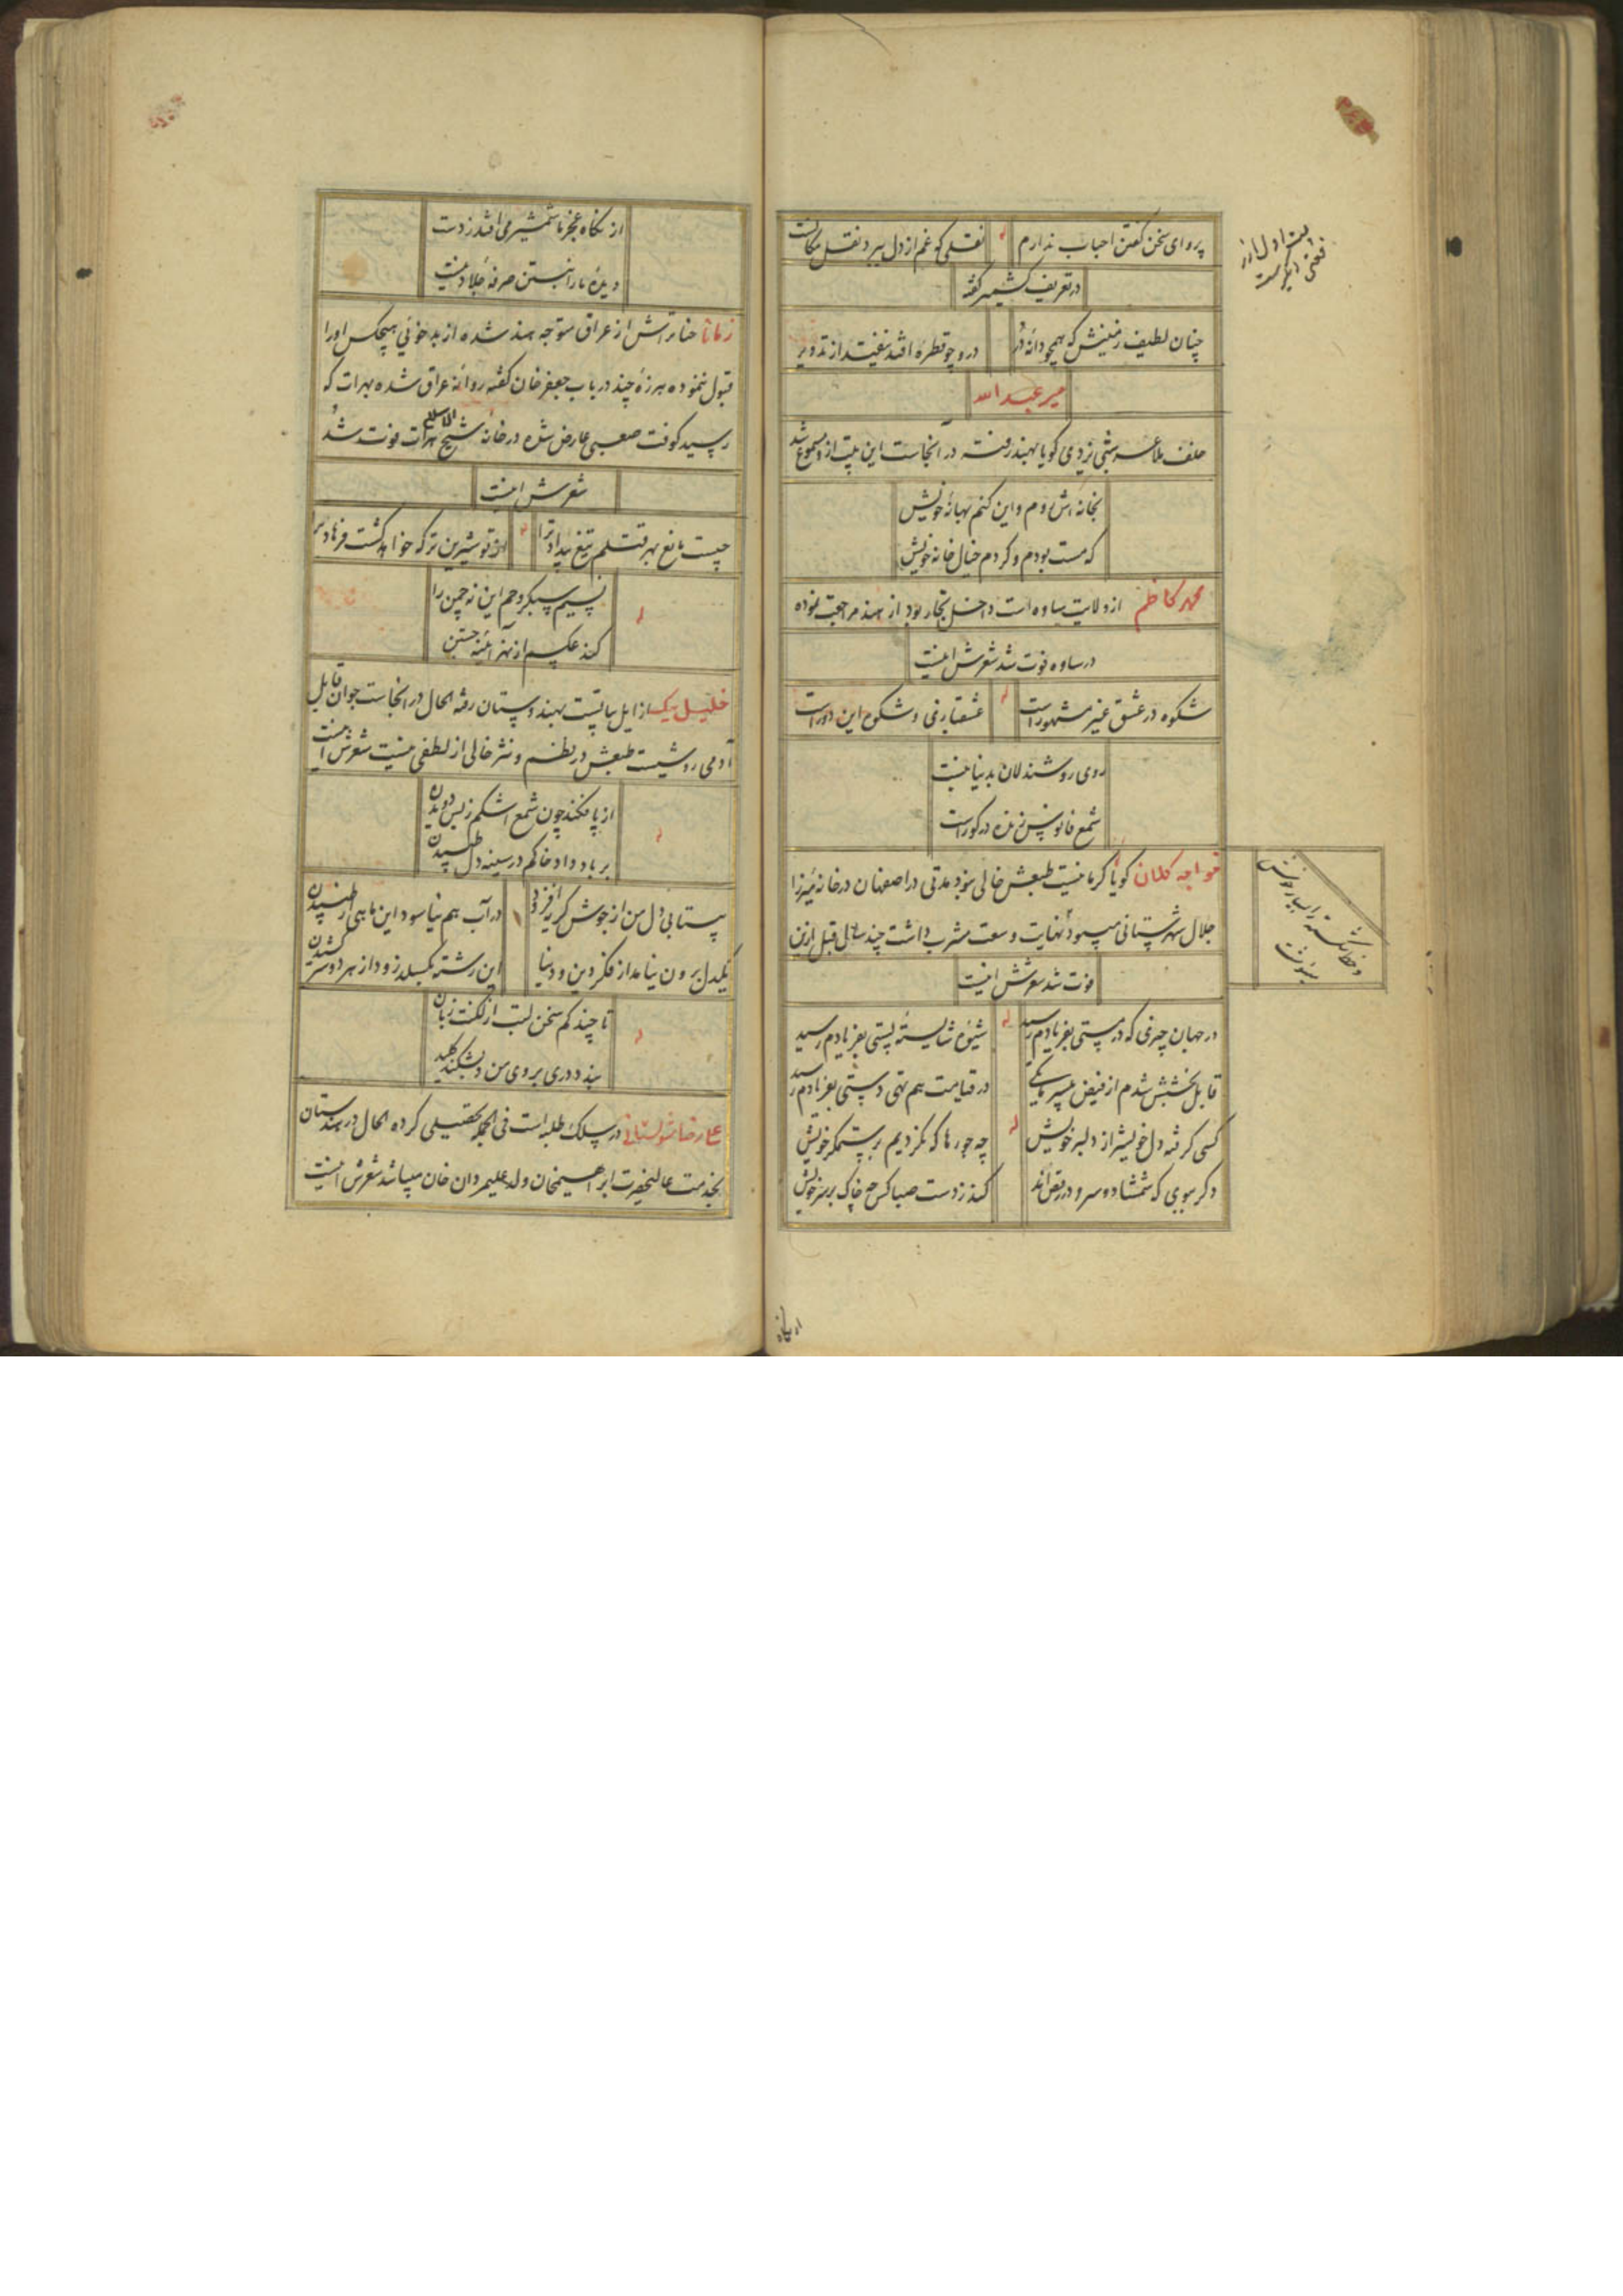 پروای سخن گفتن احباب ندارم
نقلی که غم از دل ببرد نقل مکانست
در تعریف کشمیر گفته
چنان لطیف زمینش که همچو دانه در
درو چو قطره افتد نیفتد از تدویر
میر عبدالله
خلف ملا عرشی یزدی گویا بهند رفته در آنجاست این بیت ازو مسموع شد
بخانه اش روم و این کنم بهانه خویش
که مست بودم و کردم خیال خانه خویش
محمد کاظم از ولایت ساوه است داخل تجار بود از هند مراجعت نموده
در ساوه فوت شد شعرش اینست
شکوه در عشق غیر مشهور است
عشقبازی و شکوه این دور است
روی روشندلان بدنیا نیست
شمع فانوس زنده در گور است
خواجه کلان گویا کرمانیست طبعش خالی نبود مدتی در اصفهان در خانه میرزا
جلال شهرستانی میبود نهایت وسعت مشرب داشت چند سال قبل ازین
فوت شد شعرش اینست
در جهان چیزی که در مستی بفریادم رسید
شیوه شایسته پستی بفریادم رسید
قابل بخشش شدم از فیض بیسرمایگی
در قیامت هم تهی دستی بفریادم رسید
کسی گرفته دل خویش از دلبر خویش
چه جورها که نکردیم بر ستمگر خویش
دگر ببوی که شمشاد و سرو در رقص اند
کند ز دست صبا کس چه خاک بر سر خویش
و خط شکسته را بسیار خوش
مینوشت
از نگاه عجز ما شمشیر می افتد ز دست
دیده ما را نبستن صرفه جلاد نیست
زمانا حنا تراش از عراق متوجه هند شده از بدخوئی هیچکس او را
قبول ننموده هرزه چند در باب جعفر خان گفته روانه عراق شده بهرات که
رسید کوفت صعبی عارض شده در خانه شیخ الاسلام هرات فوت شد
شعرش اینست
چیست مانع بهر قتلم تیغ بیداد ترا
از تو شیرین تر که خواهد کشت فرهاد ترا
نسیم سبکروحم این نه چمن را
کند عکسم از بهر آئینه جستن
خلیل بیک از ایل بیاتست بهندوستان رفته الحال در آنجاست جوان قابل
آدمی روشیست طبعش در نظم و نثر خالی از لطفی نیست شعرش اینست
از پا فکند چون شمع اشکم ز بس دویدن
بر باد داد خاکم در سینه دل طپیدن
بیتابی دل من از جوش گریه افزود
در آب هم نیاسود این ماهی از طپیدن
یکدل برون نیامد از فکر دین و دنیا
این رشته بگسلد زود از هر دو سر کشیدن
تا چند کم سخن لب از لکنت زبان
بندد دری بروی من و بشکند کلید
در سلک طلبه است فی الجمله تحصیلی کرده الحال در هندستان
بخدمت عالیحضرت ابراهیمخان ولد علیمردان خان میباشد شعرش اینست